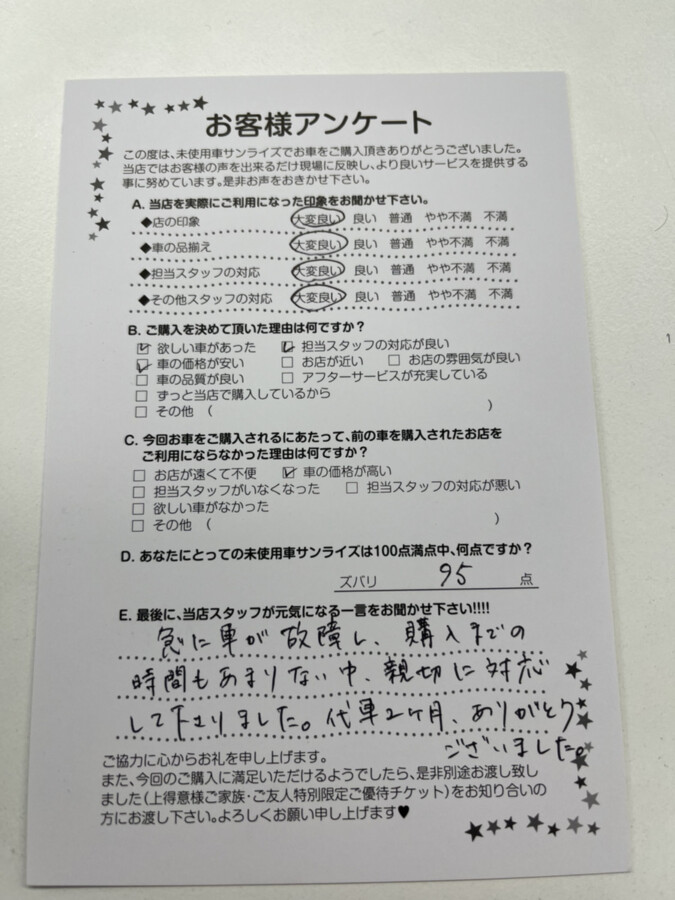 お客様アンケート
この度は、未使用車サンライズでお車をご購入頂きありがとうございました。
当店ではお客様の声を出来るだけ現場に反映し、より良いサービスを提供する
事に努めています。是非お声をおきかせ下さい。
A. 当店を実際にご利用になった印象をお聞かせ下さい。
◆店の印象 大変良い 良い 普通 やや不満 不満
◆車の品揃え 大変良い 良い 普通 やや不満 不満
◆担当スタッフの対応 大変良い 良い 普通 やや不満 不満
◆その他スタッフの対応 大変良い 良い 普通 やや不満 不満
B. ご購入を決めて頂いた理由は何ですか？
☑ 欲しい車があった ☑ 担当スタッフの対応が良い
☑ 車の価格が安い □ お店が近い □ お店の雰囲気が良い
□ 車の品質が良い □ アフターサービスが充実している
□ ずっと当店で購入しているから
□ その他 （ ）
C. 今回お車をご購入されるにあたって、前の車を購入されたお店を
ご利用にならなかった理由は何ですか？
□ お店が遠くて不便 ☑ 車の価格が高い
□ 担当スタッフがいなくなった □ 担当スタッフの対応が悪い
□ 欲しい車がなかった
□ その他 （ ）
D. あなたにとっての未使用車サンライズは100点満点中、何点ですか？
ズバリ 95 点
E. 最後に、当店スタッフが元気になる一言をお聞かせ下さい!!!!
急に車が故障し、購入までの
時間もあまりない中、親切に対応
して下さりました。代車2ヶ月、ありがとう
ございました。
ご協力に心からお礼を申し上げます。
また、今回のご購入に満足いただけるようでしたら、是非別途お渡し致し
ました（上得意様ご家族・ご友人特別限定ご優待チケット）をお知り合いの
方にお渡し下さい。よろしくお願い申し上げます♥